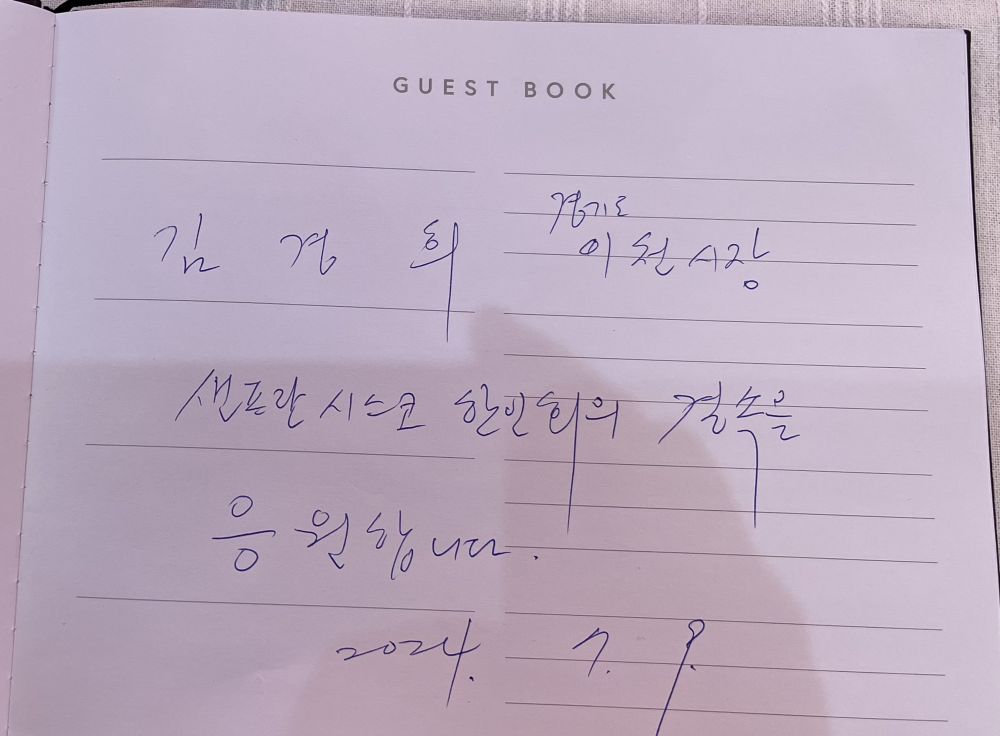 GUEST BOOK
김 경 희
경기도
이천시장
샌프란시스코 한인회의 결속을
응원합니다.
2024. 7. 9.